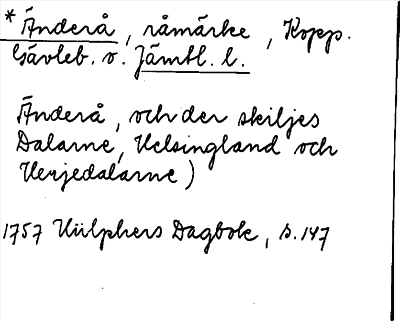 * Änderå, råmärke, Kopp.
Gävleb. o. Jämtl. l.
Änderå, och der skiljes
Dalarne, Helsingland och
Herjedalarne)
1757 Hülphers Dagbok, s. 147